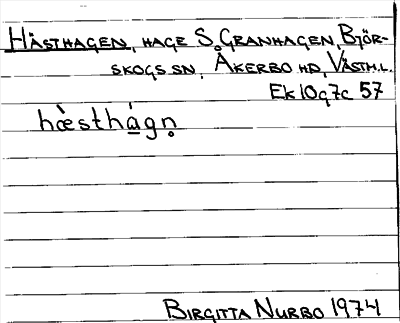 HÄSTHAGEN, HAGE S. GRANHAGEN, BJÖR-
SKOGS SN, ÅKERBO HD, VÄSTM.L.
EK 10g7c 57
hæ̀sthá̱gn̥
BIRGITTA NURBO 1974